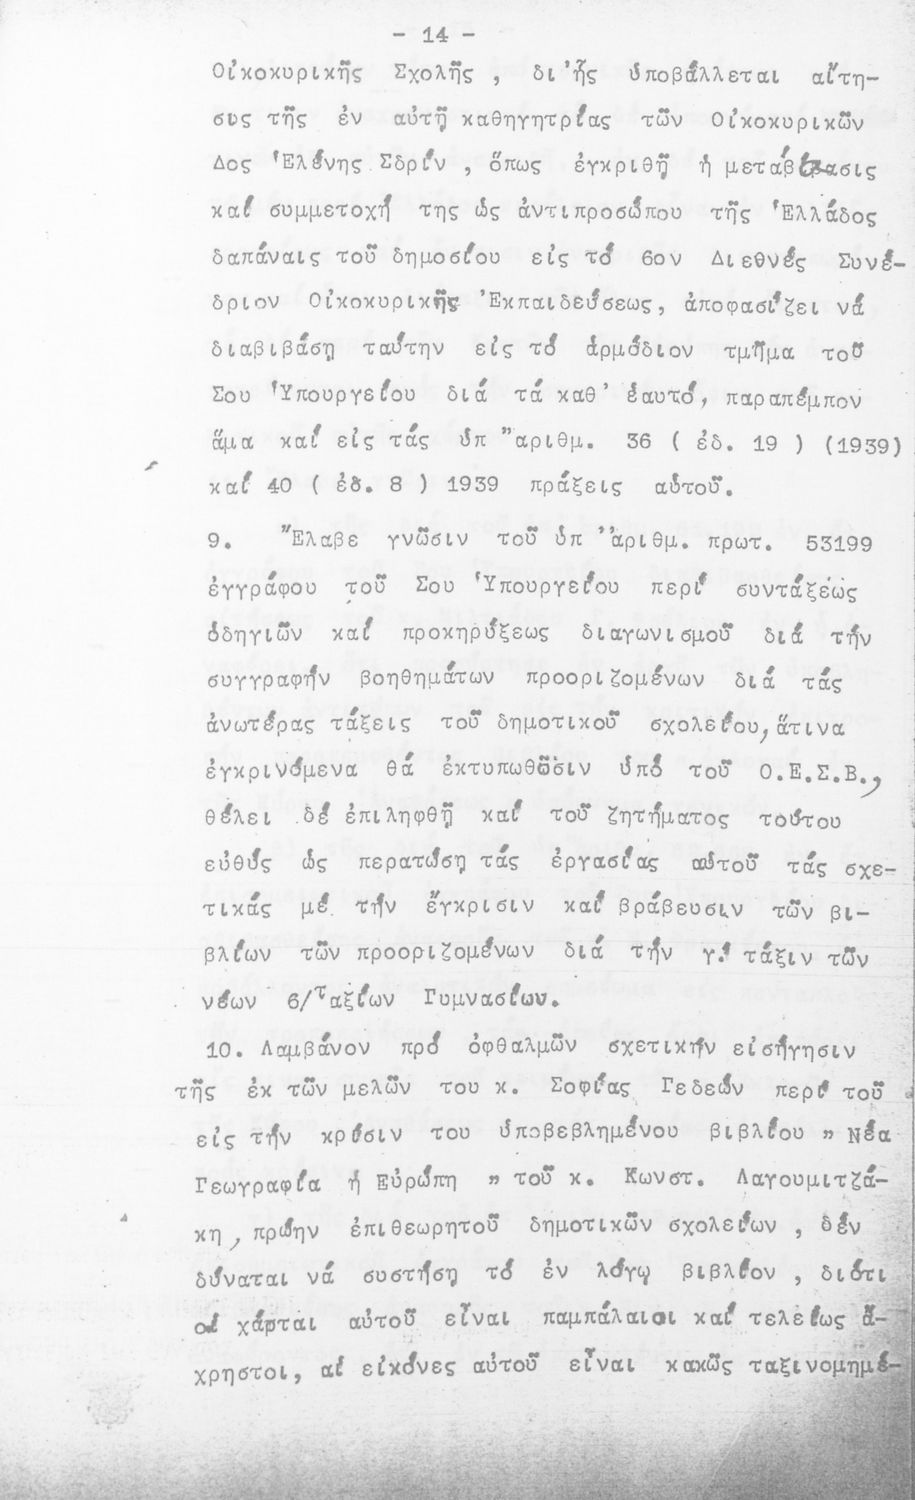 - 14 -
Οἰκοκυρικῆς Σχολῆς , δι'ἧς ὑποβάλλεται αἴτη-
σις τῆς ἐν αὐτῇ καθηγητρίας τῶν Οἰκοκυρικῶν
Δος Ἑλένης Σδρίν , ὅπως ἐγκριθῇ ἡ μετάβασις
καί συμμετοχή της ὡς ἀντιπροσώπου τῆς Ἑλλάδος
δαπάναις τοῦ δημοσίου εἰς τό 6ον Διεθνές Συνέ-
δριον Οἰκοκυρικῆς Ἐκπαιδεύσεως, ἀποφασίζει νά
διαβιβάσῃ ταύτην εἰς τό ἁρμόδιον τμῆμα τοῦ
Σου Ὑπουργείου διά τά καθ' ἑαυτό, παραπέμπον
ἅμα καί εἰς τάς ὑπ "αριθμ. 36 ( ἐδ. 19 ) (1939)
καί 40 ( ἐδ. 8 ) 1939 πράξεις αὐτοῦ.
9. Ἔλαβε γνῶσιν τοῦ ὑπ 'ἀριθμ. πρωτ. 53199
ἐγγράφου τοῦ Σου Ὑπουργείου περί συντάξεώς
ὁδηγιῶν καί προκηρύξεως διαγωνισμοῦ διά τήν
συγγραφήν βοηθημάτων προοριζομένων διά τάς
ἀνωτέρας τάξεις τοῦ δημοτικοῦ σχολείου, ἅτινα
ἐγκρινόμενα θά ἐκτυπωθῶσιν ὑπό τοῦ Ο.Ε.Σ.Β.,
θέλει δέ ἐπιληφθῇ καί τοῦ ζητήματος τούτου
εὐθύς ὡς περατώσῃ τάς ἐργασίας αὐτοῦ τάς σχε-
τικάς μέ τήν ἔγκρισιν καί βράβευσιν τῶν βι-
βλίων τῶν προοριζομένων διά τήν γ.' τάξιν τῶν
νέων 6/Ταξίων Γυμνασίων.
10. Λαμβάνον πρό ὀφθαλμῶν σχετικήν εἰσήγησιν
τῆς ἐκ τῶν μελῶν του κ. Σοφίας Γεδεών περί τοῦ
εἰς τήν κρίσιν του ὑποβεβλημένου βιβλίου " Νέα
Γεωγραφία ἡ Εὐρώπη " τοῦ κ. Κωνστ. Λαγουμιτζά-
κη, πρώην ἐπιθεωρητοῦ δημοτικῶν σχολείων , δέν
δύναται νά συστήσῃ τό ἐν λόγῳ βιβλίον , διότι
οἱ χάρται αὐτοῦ εἶναι παμπάλαιοι καί τελείως ἄ-
χρηστοι, αἱ εἰκόνες αὐτοῦ εἶναι κακῶς ταξινομημέ-